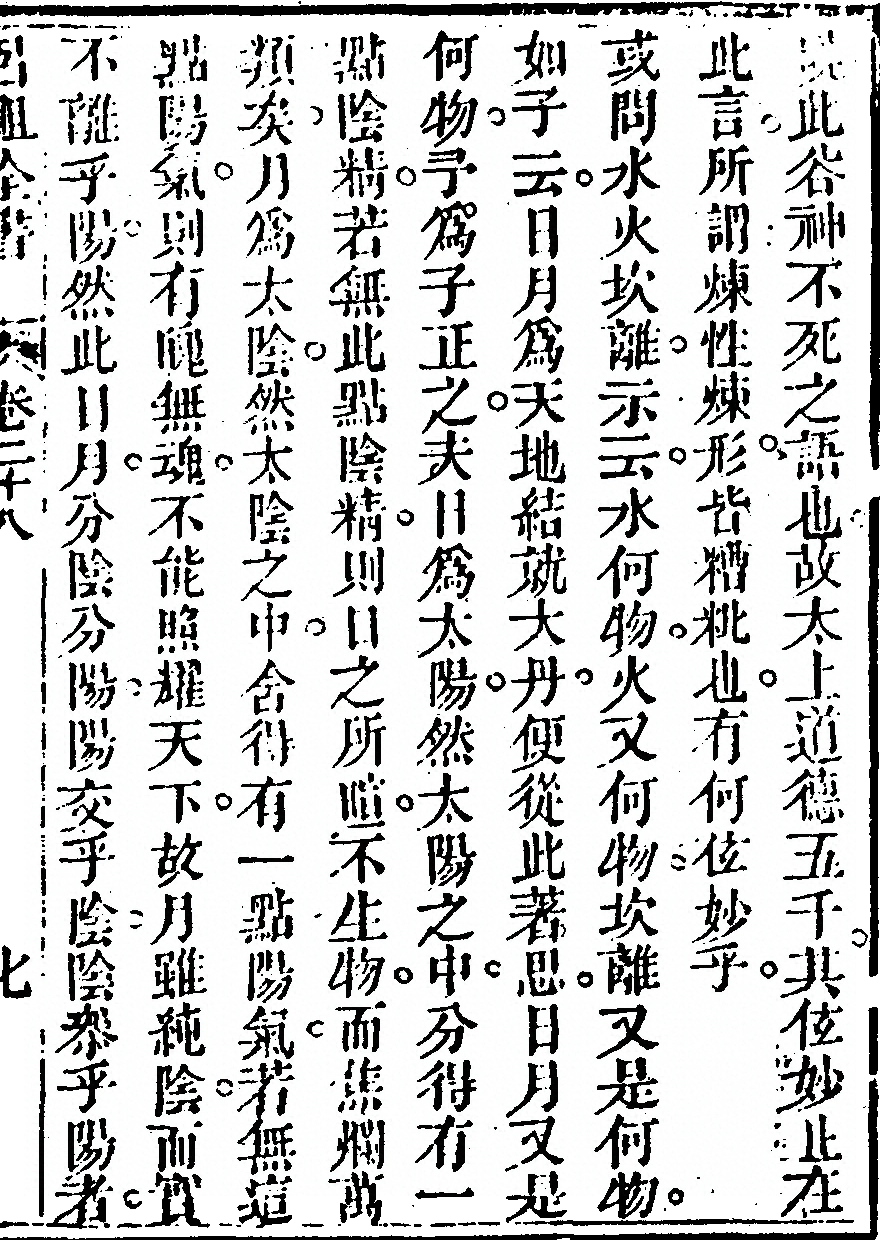 此谷神不死之語也故太上道德五千其位妙止在
此言所謂煉性煉形皆糟粃也有何位妙乎
或問水火坎離示云水何物火又何物坎離又是何物
如子云日月爲天地結就大丹便從此著思日月又是
何物予爲子正之夫日爲太陽然太陽之中分得有一
點陰精若無此點陰精則日之所暄不生物而焦爛萬
類矣月爲太陰然太陰之中含得有一點陽氣若無這
點陽氣則有魄無魂不能照耀天下故月雖純陰而實
不離乎陽然此日月分陰分陽陽交乎陰陰黎乎陽者
呂祖全書 卷二十八